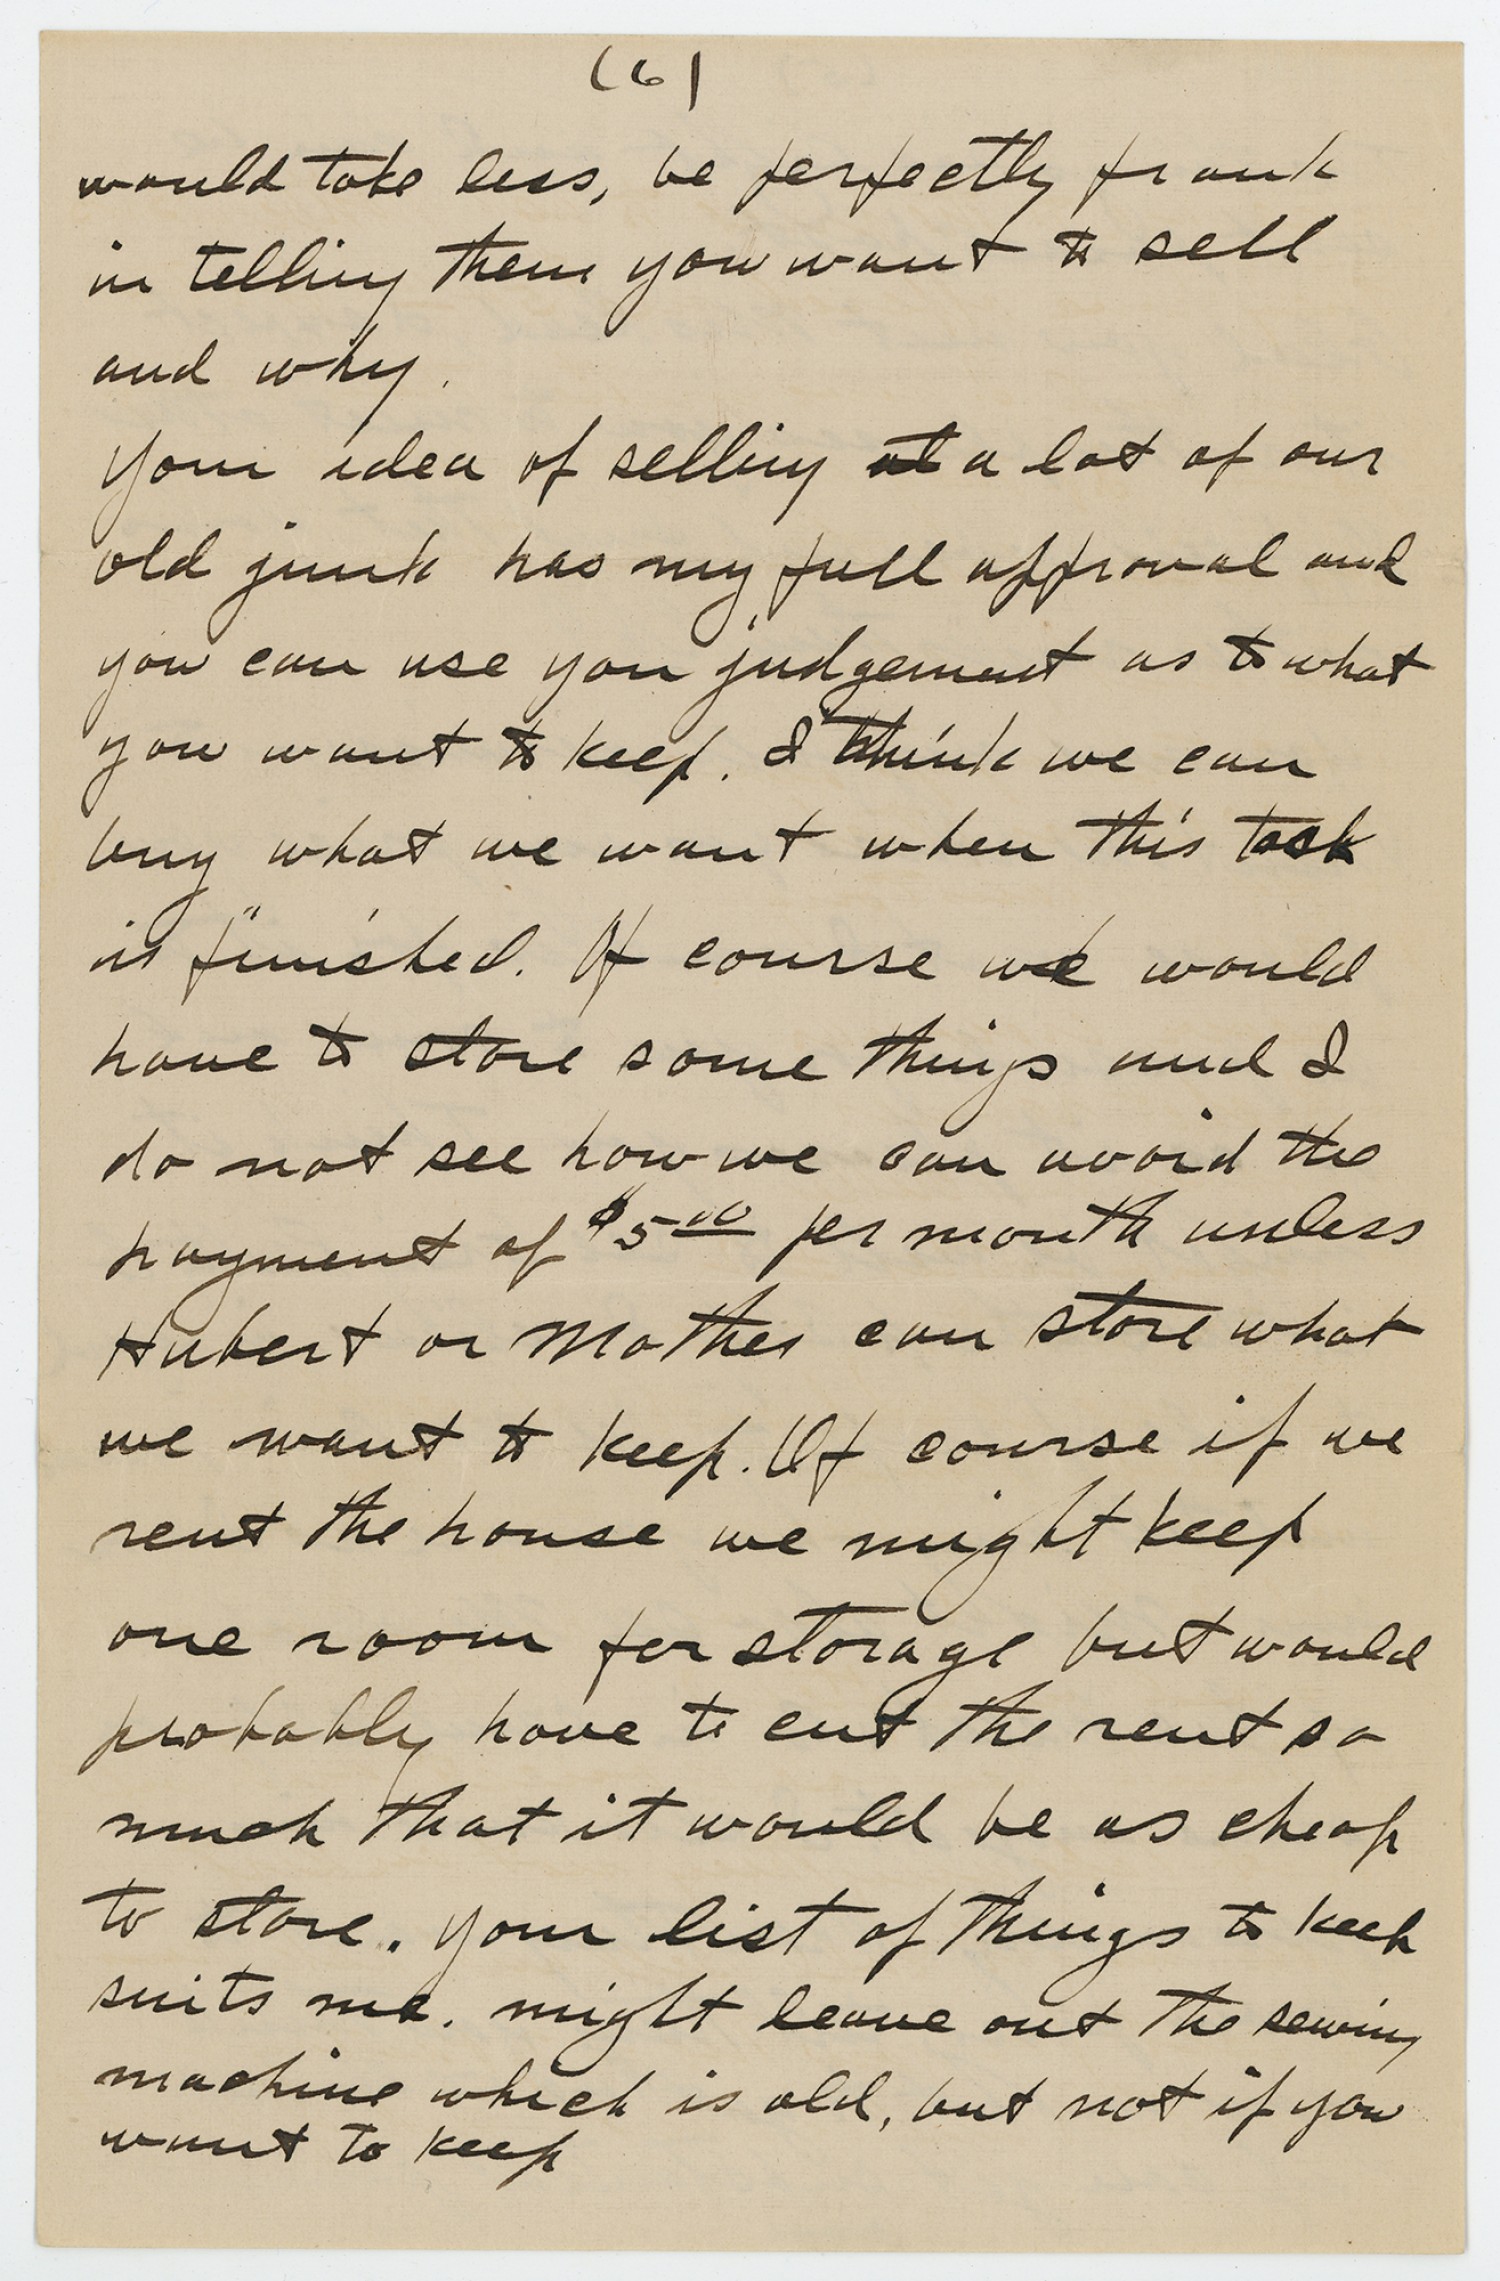 (6)
would take less, be perfectly frank
in telling them you want to sell
and why.
Your idea of selling at a lot of our
old junk has my full approval and
you can use you judgement as to what
you want to keep. I think we can
buy what we want when this task
is finished. Of course we would
have to store some things and I
do not see how we can avoid the
payment of $5.00 per month unless
Hubert or Mother can store what
we want to keep. Of course if we
rent the house we might keep
one room for storage but would
probably have to cut the rent so
much that it would be as cheap
to store. Your list of things to keep
suits me. might leave out the sewing
machine which is old, but not if you
want to keep